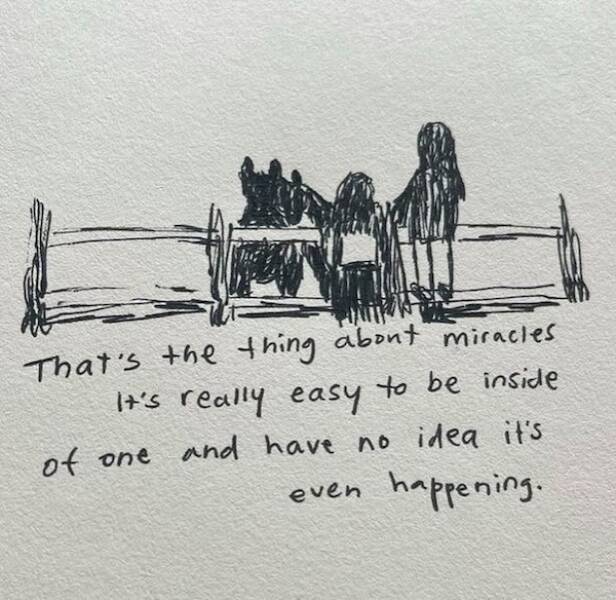 That's the thing about miracles
It's really easy to be inside
of one and have no idea it's
even happening.